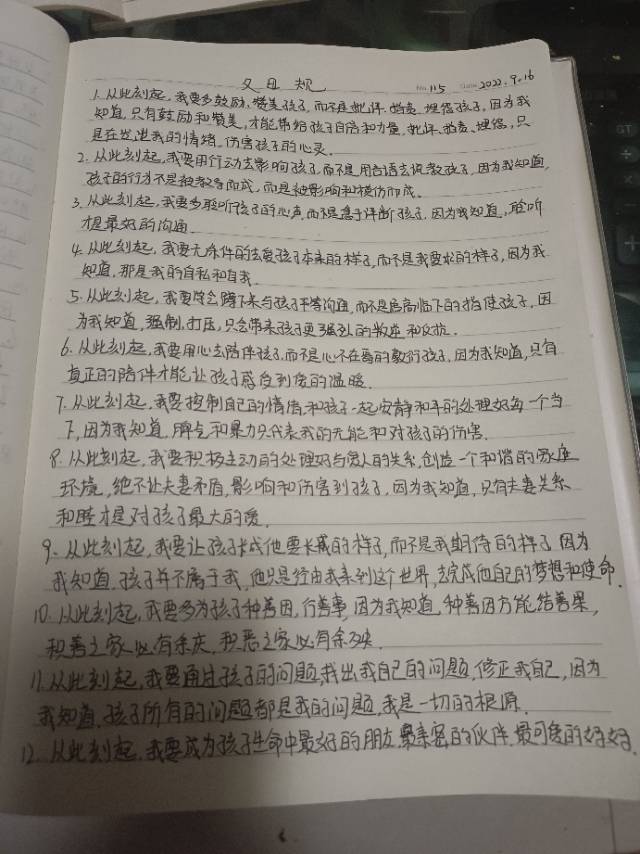 父母规 No. 115 Date 2022.9.16
1.从此刻起,我要多鼓励,赞美孩子,而不是批评、指责、埋怨孩子,因为我
知道,只有鼓励和赞美,才能带给孩子自信和力量,批评、指责、埋怨,只
是在发泄我的情绪,伤害孩子的心灵.
2.从此刻起,我要用行动去影响孩子,而不是用言语去说教孩子,因为我知道,
孩子的行为不是被教导而成,而是被影响和模仿而成.
3.从此刻起,我要多聆听孩子的心声,而不是急于评断孩子,因为我知道,聆听
才是最好的沟通.
4.从此刻起,我要无条件的去爱孩子本来的样子,而不是我要求的样子,因为我
知道,那是我的自私和自我.
5.从此刻起,我要学会蹲下来与孩子平等沟通,而不是居高临下的指使孩子,因
为我知道,强制,打压,只会带来孩子更强烈的叛逆和反抗.
6.从此刻起,我要用心去陪伴孩子,而不是心不在焉的敷衍孩子,因为我知道,只有
真正的陪伴才能让孩子感受到爱的温暖.
7.从此刻起,我要控制自己的情绪,和孩子一起安静和平的处理好每一个当
下,因为我知道,脾气和暴力只代表我的无能和对孩子的伤害.
8.从此刻起,我要积极主动的处理好与爱人的关系,创造一个和谐的家庭
环境,绝不让夫妻矛盾,影响和伤害到孩子,因为我知道,只有夫妻关系
和睦才是对孩子最大的爱.
9.从此刻起,我要让孩子长成他要长成的样子,而不是我期待的样子,因为
我知道,孩子并不属于我,他只是经由我来到这个世界,去完成他自己的梦想和使命.
10.从此刻起,我要多为孩子种善因,行善事,因为我知道,种善因方能结善果,
积善之家必有余庆,积恶之家必有余殃.
11.从此刻起,我要通过孩子的问题,找出我自己的问题,修正我自己,因为
我知道,孩子所有的问题都是我的问题,我是一切的根源.
12.从此刻起,我要成为孩子生命中最好的朋友,最亲密的伙伴,最可爱的妈妈.